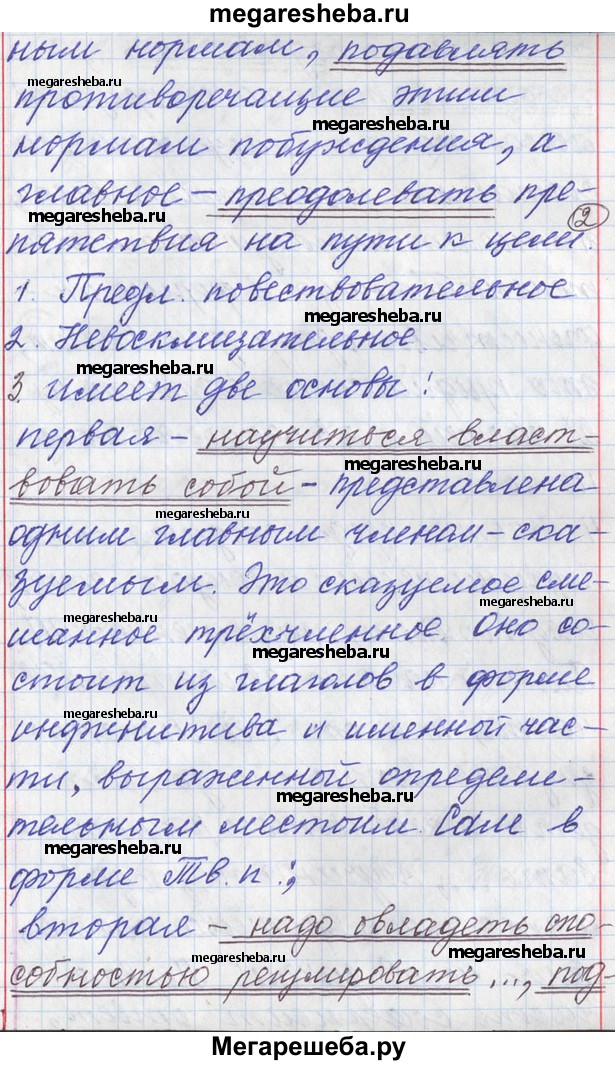 megaresheba.ru
ным нормам, подавлять
megaresheba.ru
противоречащие этим
megaresheba.ru
нормам побуждения, а
главное – преодолевать пре-
megaresheba.ru
2
пятствия на пути к цели.
1. Предл. повествовательное
2. Невосклицательное
megaresheba.ru
3. имеет две основы:
первая – научиться власт-
megaresheba.ru
вовать собой – представлена
megaresheba.ru
одним главным членом – ска-
зуемым. Это сказуемое сме-
megaresheba.ru
megaresheba.ru
шанное трёхчленное. Оно со-
megaresheba.ru
стоит из глаголов в форме
megaresheba.ru
инфинитива и именной час-
ти, выраженной определи-
megaresheba.ru
тельным местоим. Сам в
megaresheba.ru
форме Тв. п.;
вторая – надо овладеть спо-
megaresheba.ru
собностью регулировать ..., под-
megaresheba.ru
Мегарешеба.ру